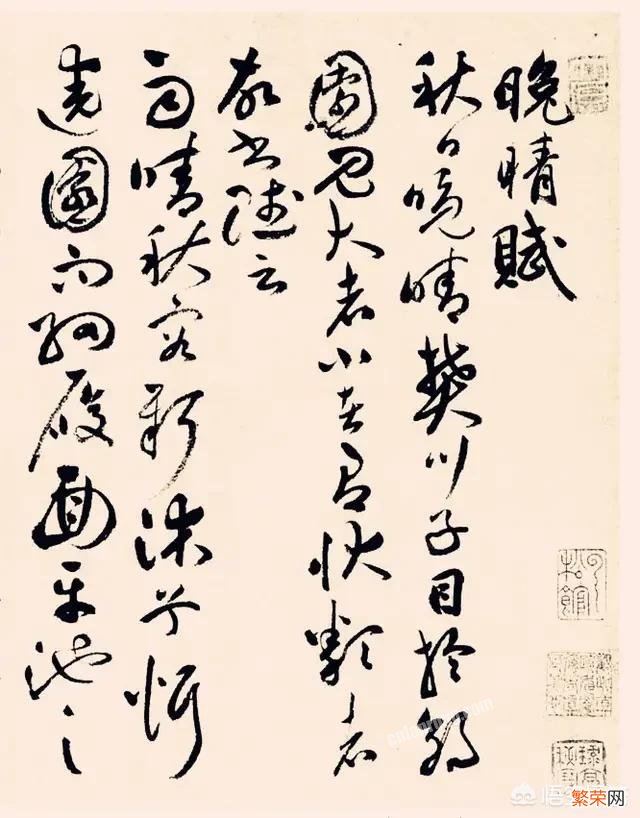 晚晴賦
秋日晚晴樊川子目於郊
園見大者小者有狀類者
故書賦云
雨晴秋容新沐兮忻
遶園而細履面平池之
繁荣网